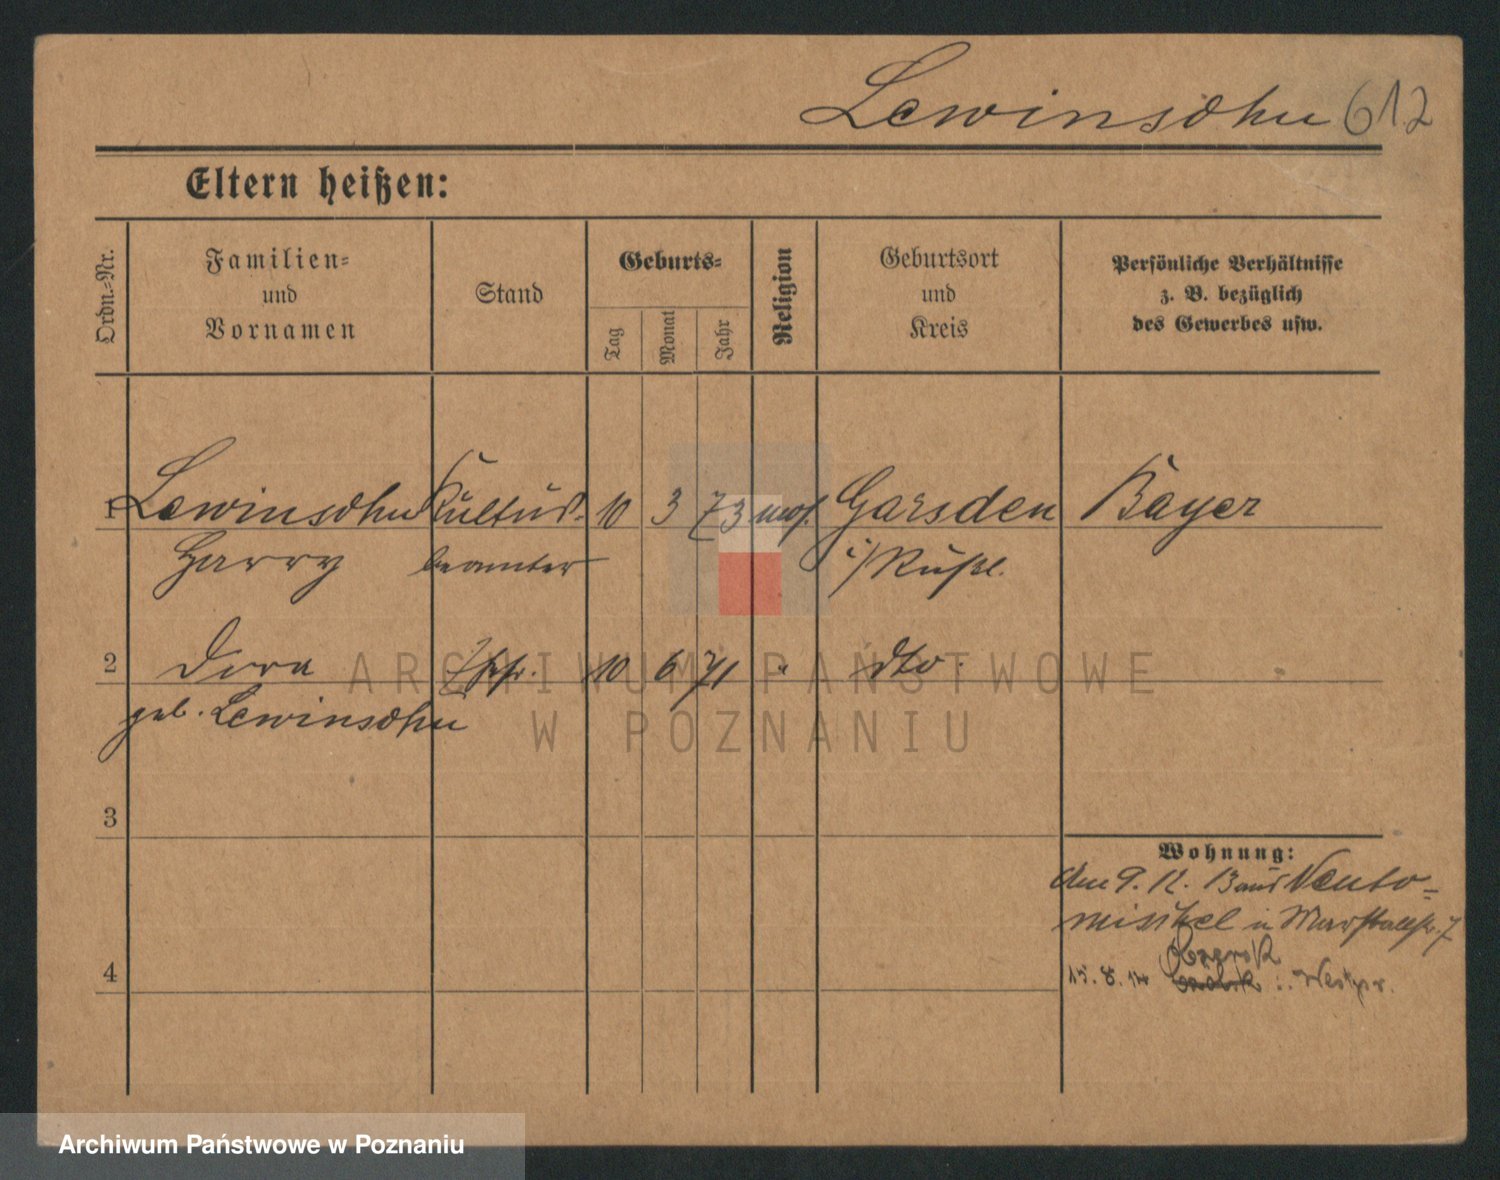 Lewinsohn 612
Eltern heißen:
Ordn.-Nr.
Familien-
und
Vornamen
Stand
Geburts-
Tag
Monat
Jahr
Religion
Geburtsort
und
Kreis
Persönliche Verhältnisse
z. B. bezüglich
des Gewerbes usw.
1 Lewinsohn Kultus- 10 3 73 mos. Garsden Bayer
Harry beamter i/Rußl.
2 Dora 10 6 71 " dto.
geb. Lewinsohn
ARCHIWUM PAŃSTWOWE
W POZNANIU
3
Wohnung:
9. 12. 13 aus Neuto-
mischel in Marstallstr. 7
4
15. 8. 14 Czersk i. Westpr.
Archiwum Państwowe w Poznaniu